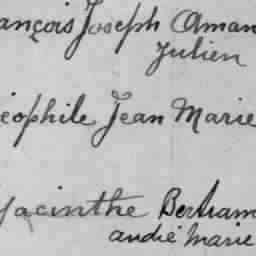 ançois Joseph Aman
Julien
éophile Jean Marie
Hyacinthe Bertram
andré marie